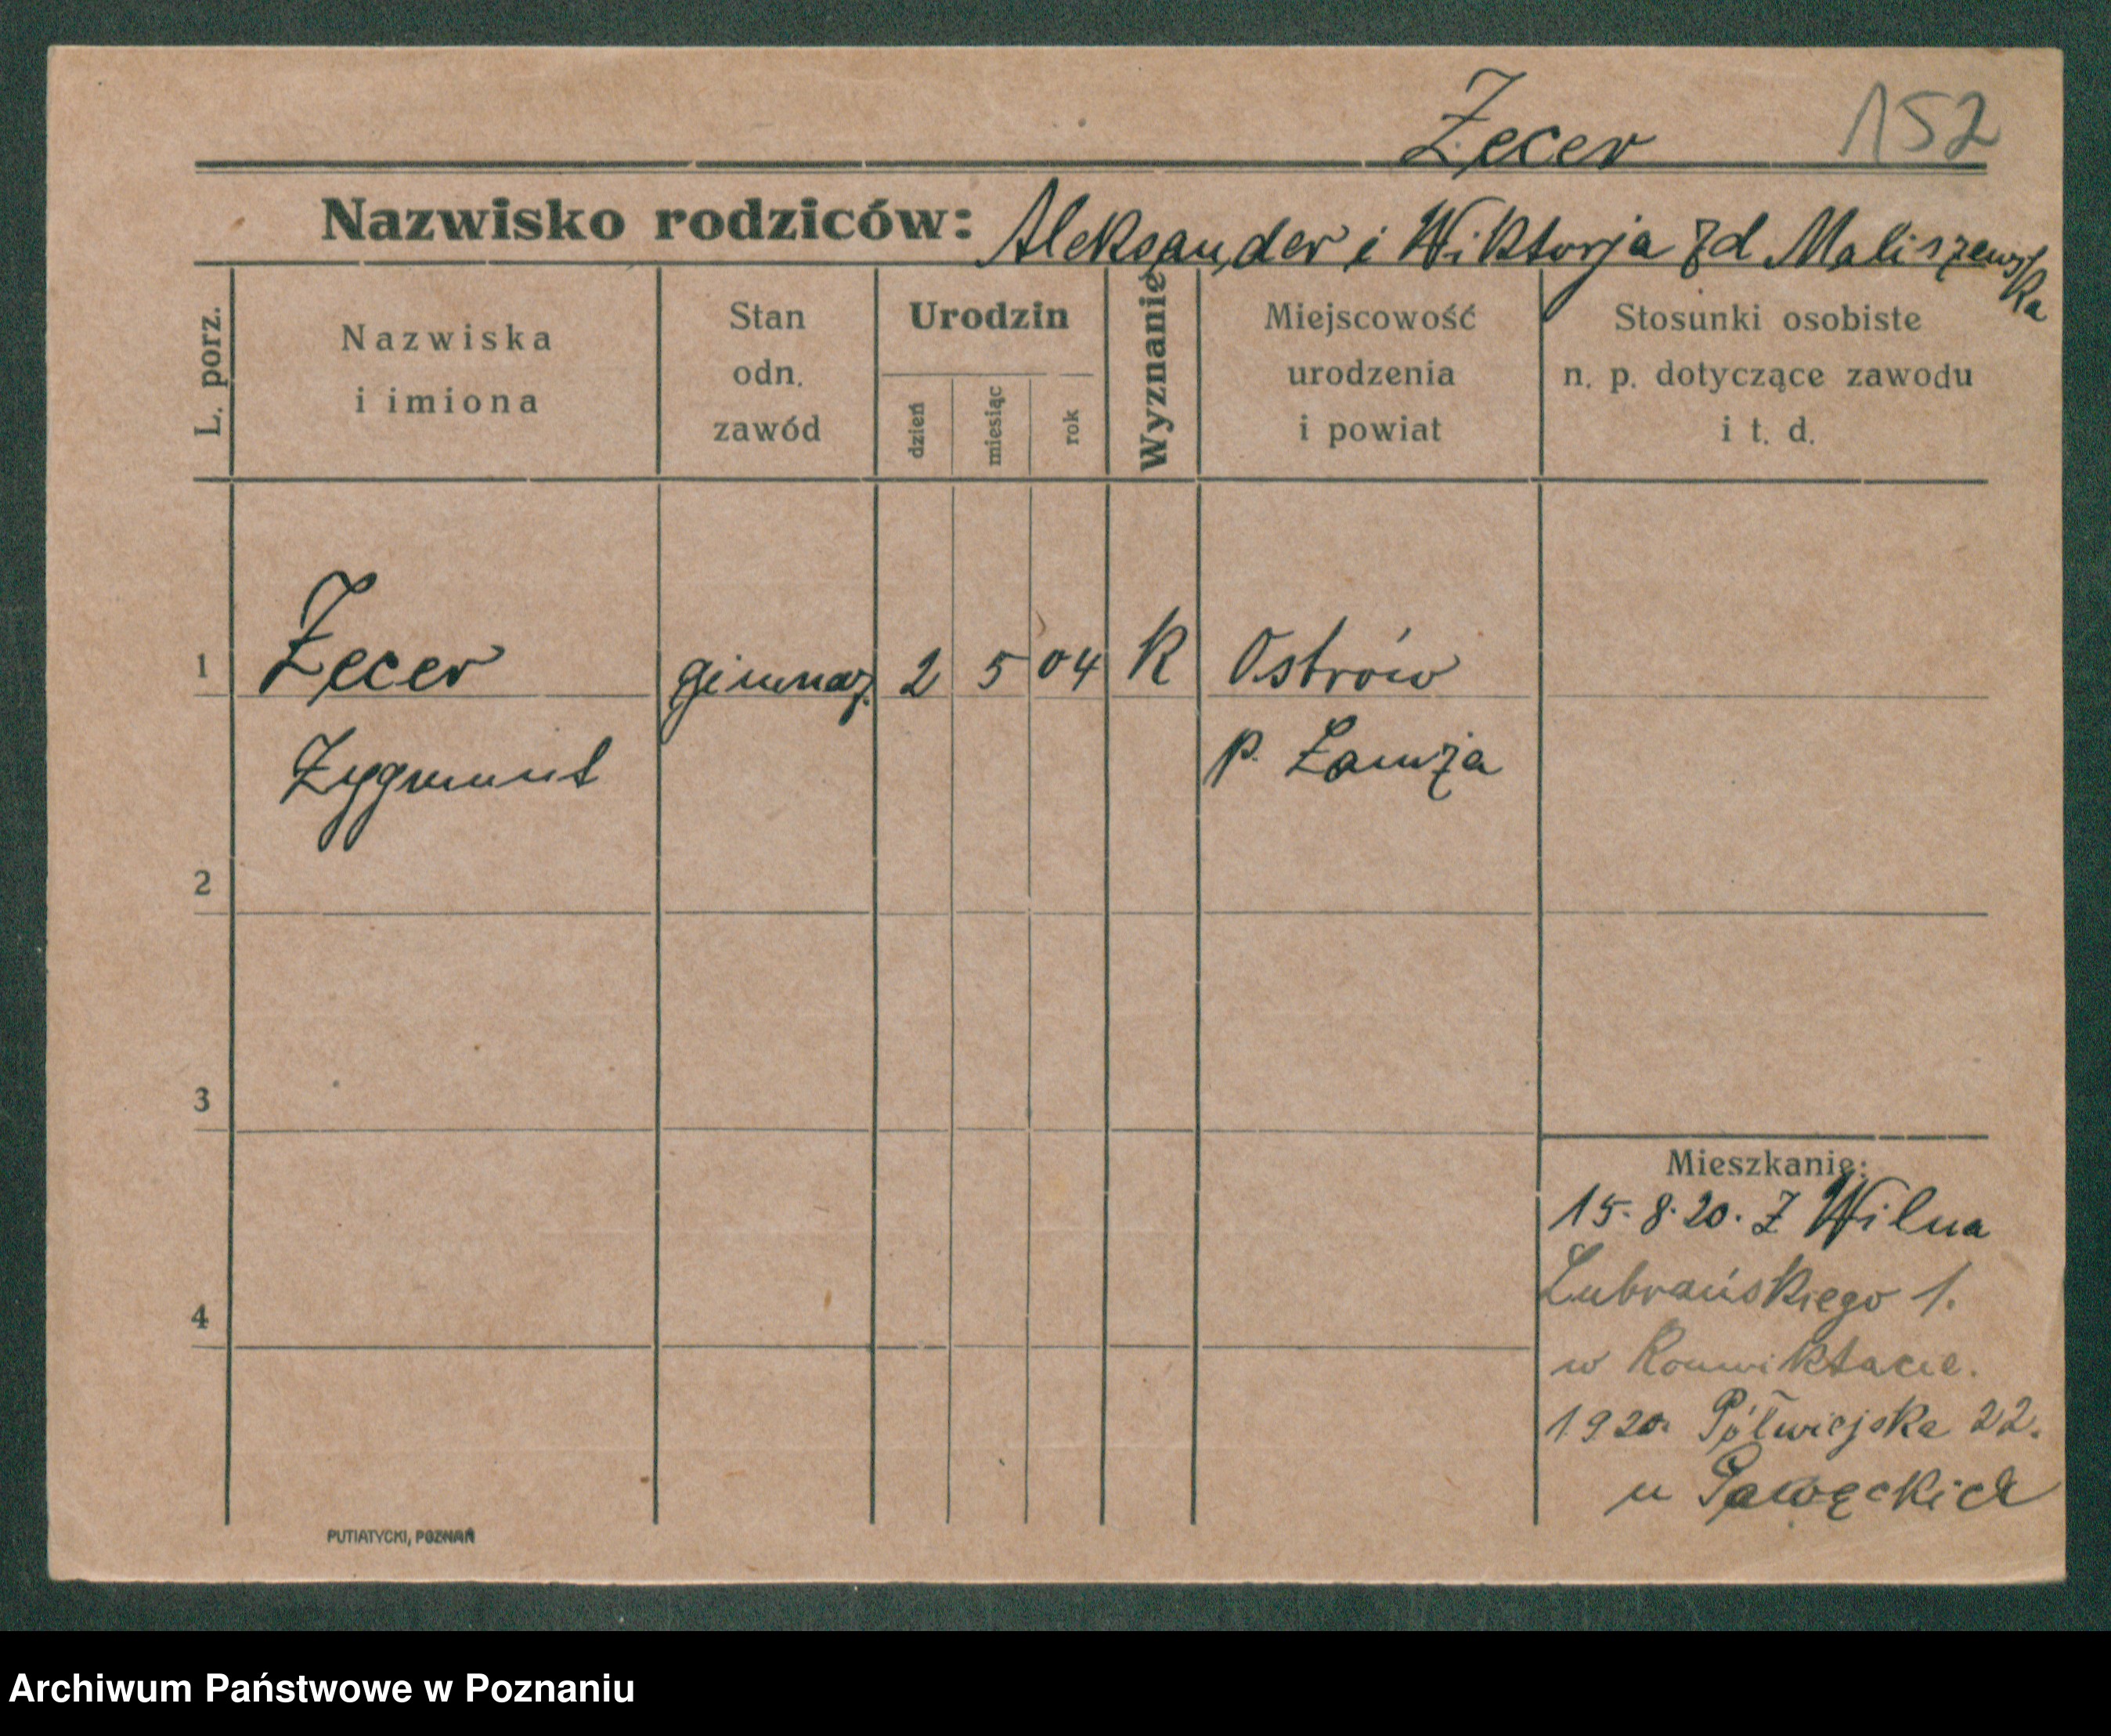 Zecer 152
Nazwisko rodziców: Aleksander i Wiktorja zd Maliszewska
L. porz.
Nazwiska
i imiona
Stan
odn.
zawód
Urodzin
dzień
miesiąc
rok
Wyznanie
Miejscowość
urodzenia
i powiat
Stosunki osobiste
n. p. dotyczące zawodu
i t. d.
1 Zecer gimnaz. 2 5 04 K Ostrów
Zygmunt p. Łomża
2
3
4
Mieszkanie:
15.8.20. Z Wilna
Lubrańskiego 1.
w Konwiktacie.
1920. Półwiejska 22.
u
PUTIATYCKI, POZNAŃ
Archiwum Państwowe w Poznaniu